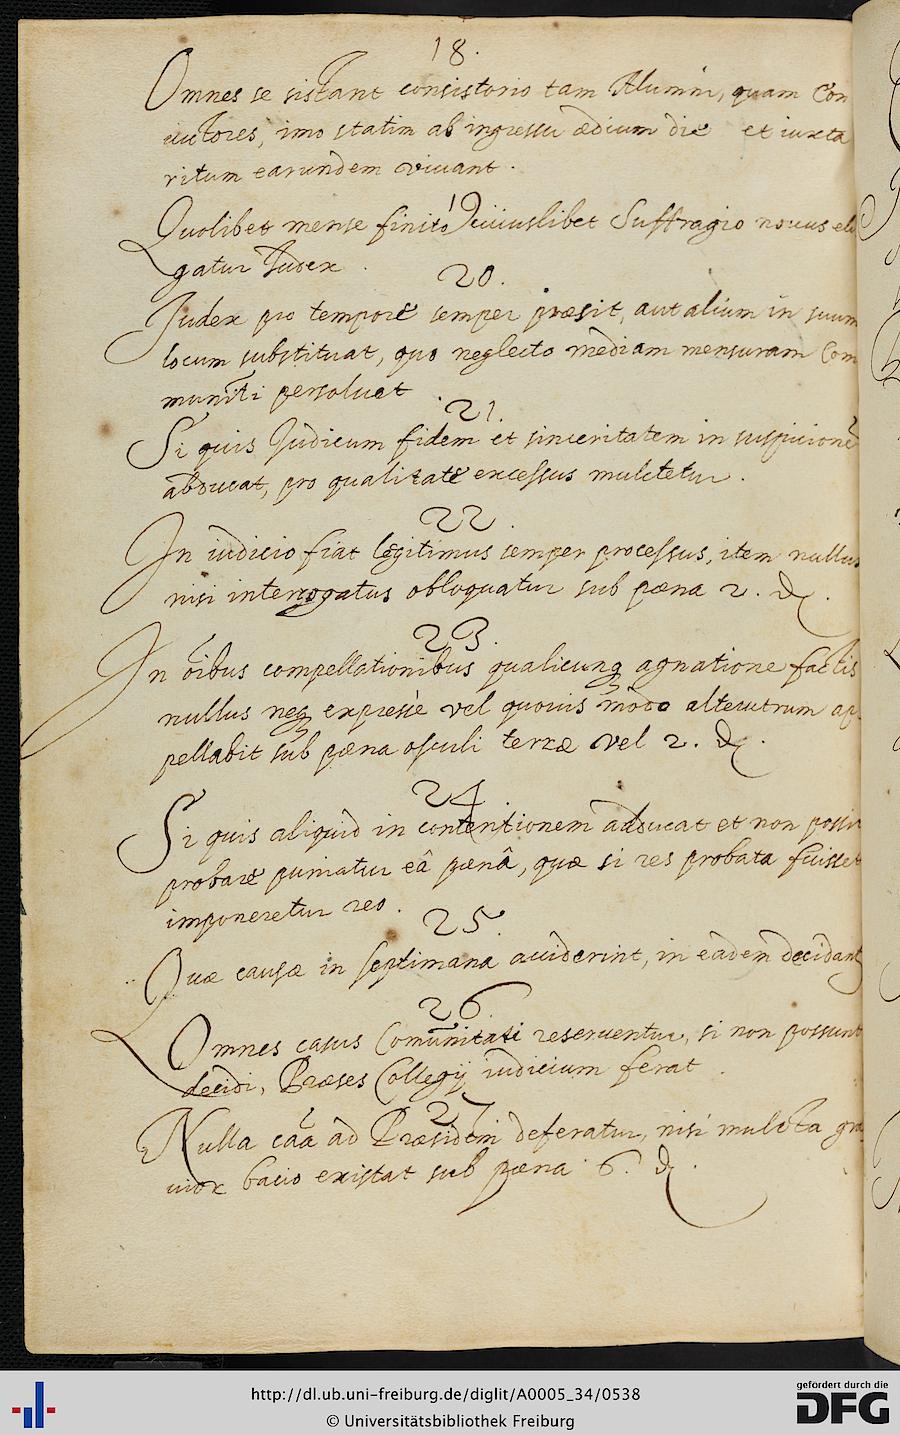 18.
Omnes se sistant consistorio tam Alumni, quam Con
uictores, imo statim ab ingressu ædium die et iuxta
ritum earundem viuant.
19
Quolibet mense finito cuiuslibet Suffragio nouus eli
gatur Iudex.
20.
Iudex pro tempore semper præsit, aut alium in suum
locum substituat, quo neglecto mediam mensuram Com
muniti persoluat.
21.
Si quis Iudicum fidem et sinceritatem in suspicione
abducat, pro qualitate excessus mulctetur.
22.
In iudicio fiat legitimus semper processus, item nullus
nisi interrogatus obloquatur sub pœna 2. d.
23.
In oibus compellationibus qualicunq agnatione factis
nullus neq expresse vel quouis modo alterutrum ap
pellabit sub pœna osculi terræ vel 2. d.
24.
Si quis aliquid in contentionem adducat et non possit
probare puniatur eâ pœnâ, quæ si res probata fuisset
imponeretur reo.
25.
Quæ causæ in septimana acciderint, in eadem decidant
26.
Omnes casus Comunitati reseruentur, si non possunt
decidi, Præses Collegij iudicium ferat.
27
Nulla caa ad Præsidem deferatur, nisi mulcta gra
uior bacio existat sub pœna 6. d.
http://dl.ub.uni-freiburg.de/diglit/A0005_34/0538
© Universitätsbibliothek Freiburg
gefördert durch die
DFG